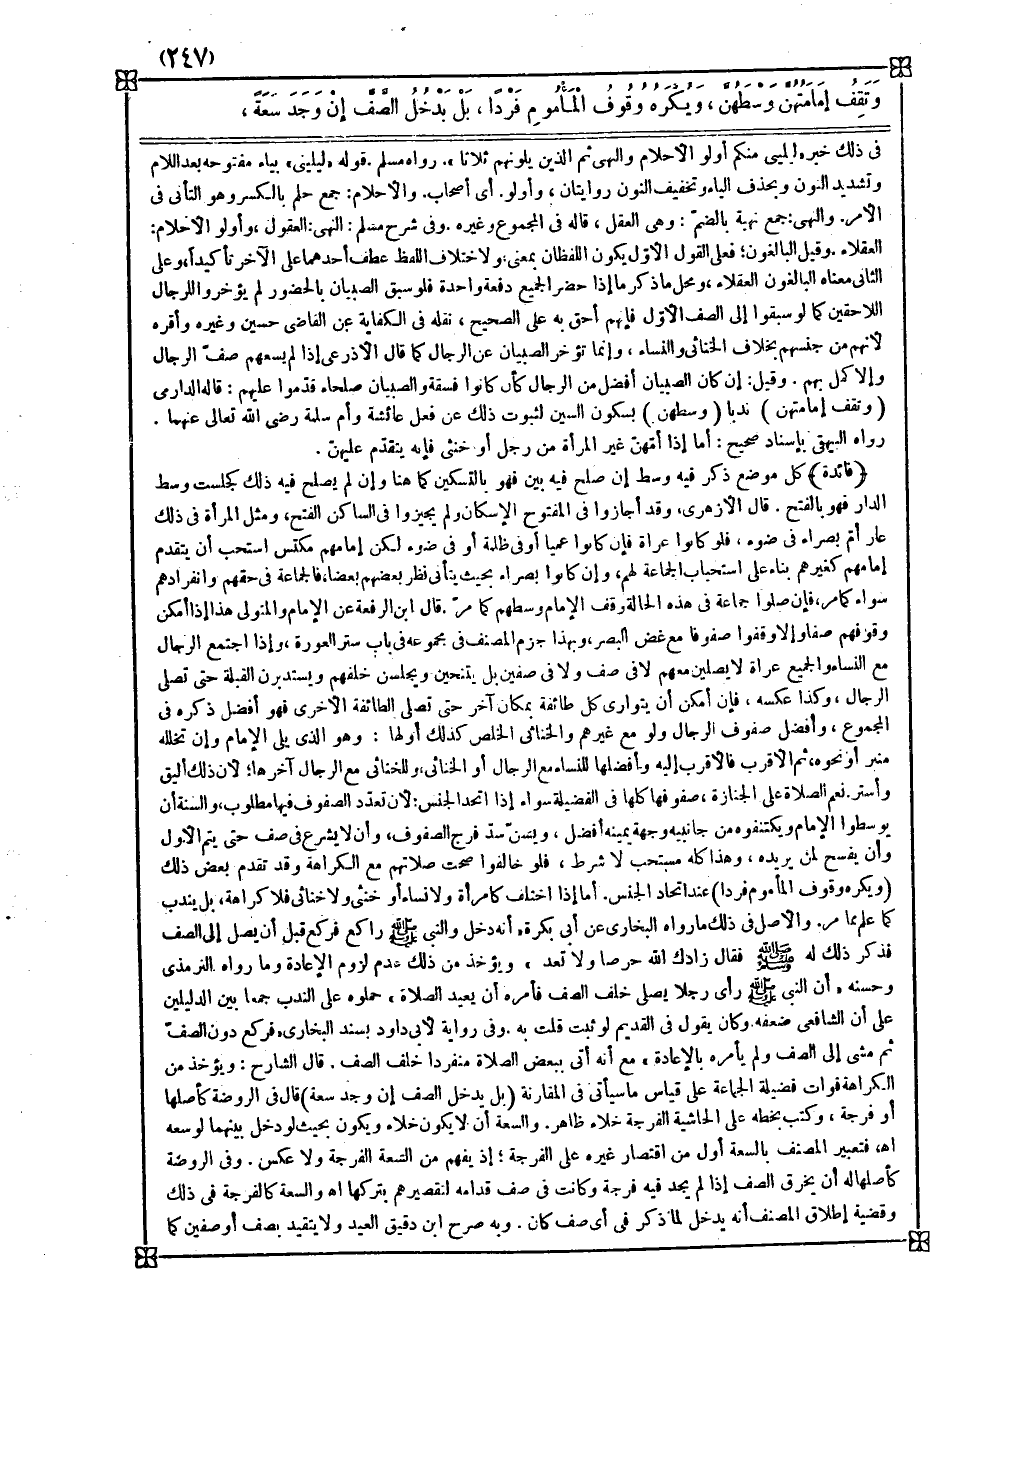 (٢٤٧)
وَتَقِفُ إِمَامَتُهُنَّ وَسْطَهُنَّ ، وَيُكْرَهُ وُقُوفُ الْمَأْمُومِ فَرْدًا ، بَلْ يَدْخُلُ الصَّفَّ إِنْ وَجَدَ سَعَةً ،
فى ذلك خبر «ليلينى منكم أولو الأحلام والنهى ثم الذين يلونهم ثلاثا». رواه مسلم . قوله «ليلينى» بياء مفتوحة بعد اللام
وتشديد النون وبحذف الياء وتخفيف النون روايتان ، وأولو. أى أصحاب. والأحلام: جمع حلم بالكسر وهو التأنى فى
الأمر. والنهى: جمع نهية بالضمّ : وهى العقل ، قاله فى المجموع وغيره . وفى شرح مسلم : النهى: العقول ، وأولو الأحلام:
العقلاء . وقيل البالغون؛ فعلى القول الأوّل يكون اللفظان بمعنى، ولاختلاف اللفظ عطف أحدهما على الآخر تأكيدا، وعلى
الثانى معناه البالغون العقلاء ، ومحل ماذكر ما إذا حضر الجميع دفعة واحدة فلو سبق الصبيان بالحضور لم يؤخروا للرجال
اللاحقين كما لو سبقوا إلى الصف الأوّل فإنهم أحق به على الصحيح ، نقله فى الكفاية عن القاضى حسين وغيره وأقره
لأنهم من جنسهم بخلاف الخنائى والنساء ، وإنما تؤخر الصبيان عن الرجال كما قال الأذرعى إذا لم يسعهم صفّ الرجال
وإلا كمل بهم . وقيل: إن كان الصبيان أفضل من الرجال كأن كانوا فسقة والصبيان صلحاء قدّموا عليهم : قاله الدارمى
( وتقف إمامتهن ) ندبا ( وسطهن ) بسكون السين لثبوت ذلك عن فعل عائشة وأم سلمة رضى الله تعالى عنهما .
رواه البيهقى بإسناد صحيح : أما إذا أمّهنّ غير المرأة من رجل أو خنثى فإنه يتقدّم عليهنّ .
(فائدة) كل موضع ذكر فيه وسط إن صلح فيه بين فهو بالتسكين كما هنا وإن لم يصلح فيه ذلك كجلست وسط
الدار فهو بالفتح . قال الأزهرى، وقد أجازوا فى المفتوح الإسكان ولم يجيزوا فى الساكن الفتح، ومثل المرأة فى ذلك
عار أمّ بصراء فى ضوء ، فلو كانوا عراة فإن كانوا عميا أو فى ظلمة أو فى ضوء لكن إمامهم مكتس استحب أن يتقدم
إمامهم كغيرهم بناء على استحباب الجماعة لهم، وإن كانوا بصراء بحيث يتأتى نظر بعضهم بعضا، فالجماعة فى حقهم وانفرادهم
سواء كما مر، فإن صلوا جماعة فى هذه الحالة وقف الإمام وسطهم كما مرّ . قال ابن الرفعة عن الإمام والمتولى هذا إذا أمكن
وقوفهم صفا وإلا وقفوا صفوفا مع غض البصر، وبهذا جزم المصنف فى مجموعه فى باب ستر العورة ، وإذا اجتمع الرجال
مع النساء والجميع عراة لايصلين معهم لافى صف ولا فى صفين بل يتنحين ويجلسن خلفهم ويستدبرن القبلة حتى تصلى
الرجال ، وكذا عكسه ، فإن أمكن أن يتوارى كل طائفة بمكان آخر حتى تصلى الطائفة الأخرى فهو أفضل ذكره فى
المجموع ، وأفضل صفوف الرجال ولو مع غيرهم والخنائى الخلص كذلك أولها : وهو الذى يلى الإمام وإن تخلله
منبر أو نحوه، ثم الأقرب فالأقرب إليه وأفضلها للنساء مع الرجال أو الخنائى، وللخنائى مع الرجال آخرها؛ لأن ذلك أليق
وأستر. نعم الصلاة على الجنازة ، صفوفها كلها فى الفضيلة سواء إذا اتحد الجنس: لأن تعدّد الصفوف فيها مطلوب، والسنة أن
يوسطوا الإمام ويكتنفوه من جانبيه وجهة يمينه أفضل ، ويسنّ سدّ فرج الصفوف، وأن لا يشرع فى صف حتى يتم الأول
وأن يفسح لمن يريده ، وهذا كله مستحب لا شرط ، فلو خالفوا صحت صلاتهم مع الكراهة وقد تقدم بعض ذلك
(ويكره وقوف المأموم فردا) عند اتحاد الجنس. أما إذا اختلف كامرأة ولا نساء أو خنثى ولا خنائى فلا كراهة، بل يندب
كما علم مما مر. والأصل فى ذلك مارواه البخارى عن أبى بكرة، أنه دخل والنبى ﷺ راكع فركع قبل أن يصل إلى الصف
فذكر ذلك له ﷺ فقال زادك الله حرصا ولا تعد ، ويؤخذ من ذلك عدم لزوم الإعادة وما رواه الترمذى
وحسنه ، أن النبى ﷺ رأى رجلا يصلى خلف الصف فأمره أن يعيد الصلاة ، حملوه على الندب جمعا بين الدليلين
على أن الشافعى ضعفه. وكان يقول فى القديم لو ثبت قلت به . وفى رواية لأبى داود بسند البخارى، فركع دون الصفّ
ثم مشى إلى الصف ولم يأمره بالإعادة ، مع أنه أتى ببعض الصلاة منفردا خلف الصف . قال الشارح : ويؤخذ من
الكراهة فوات فضيلة الجماعة على قياس ماسيأتى فى المقارنة (بل يدخل الصف إن وجد سعة) قال فى الروضة كأصلها
أو فرجة ، وكتب بخطه على الحاشية الفرجة خلاء ظاهر. والسعة أن لايكون خلاء ويكون بحيث لو دخل بينهما لوسعه
اه‍، فتعبير المصنف بالسعة أولى من اقتصار غيره على الفرجة ؛ إذ يفهم من السعة الفرجة ولا عكس . وفى الروضة
كأصلها له أن يخرق الصف إذا لم يجد فيه فرجة وكانت فى صف قدامه لتقصيرهم بتركها اه‍ والسعة كالفرجة فى ذلك
وقضية إطلاق المصنف أنه يدخل لما ذكر فى أى صف كان . وبه صرح ابن دقيق العيد ولا يتقيد بصف أو صفين كما